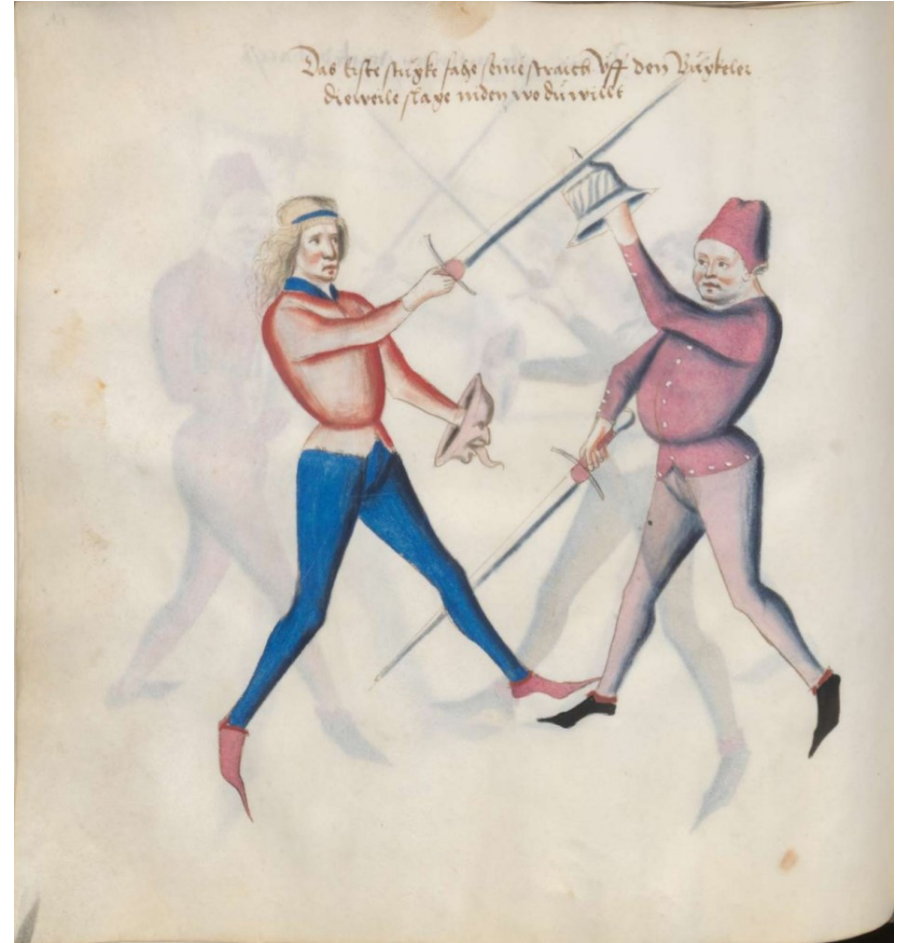 Das erste stugke fahe seine straich vff den Buckeler
dieweile slage inden wo du wilt